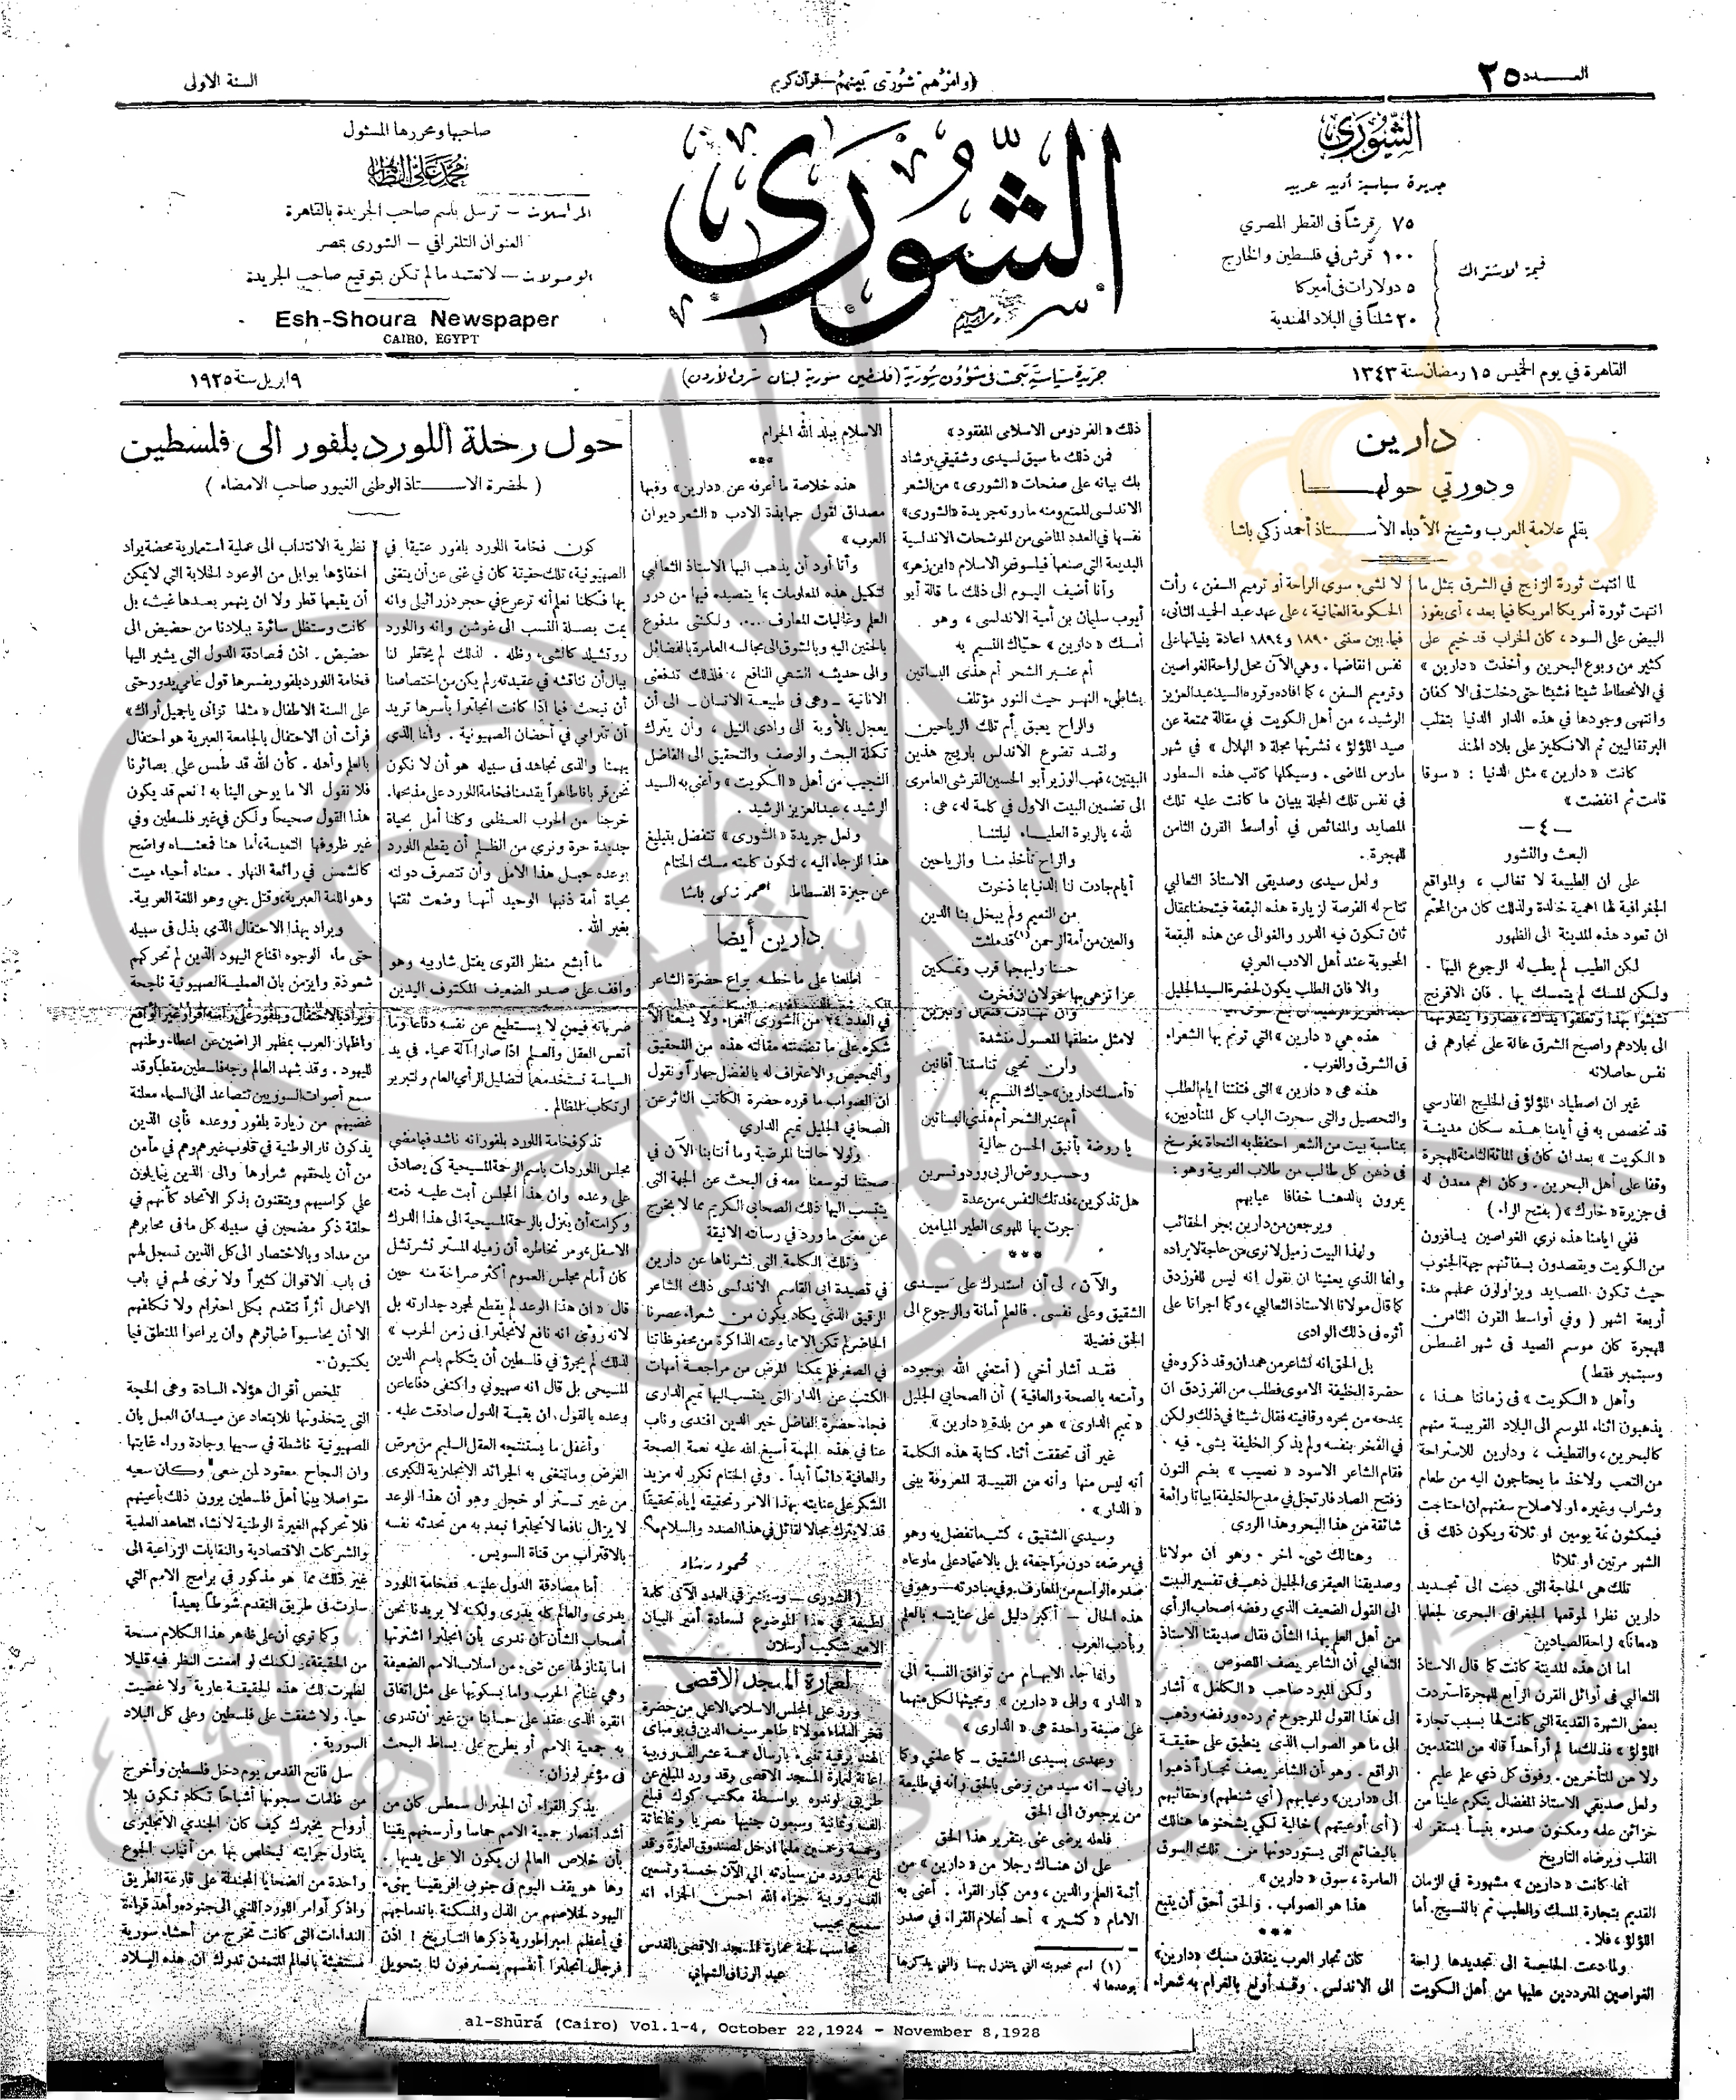 العـــدد ٢٥
﴿وامرهم شورى بينهم﴾ — قرآن كريم
السنة الاولى
الشورى
جريدة سياسية أدبية عربية
قيمة الاشتراك
٧٥ قرشاً في القطر المصري
١٠٠ قرش في فلسطين والخارج
٥ دولارات في أميركا
٢٠ شلناً في البلاد الهندية
الشورى
صاحبها ومحررها المسئول
محمد علي الطاهر
المراسلات — ترسل باسم صاحب الجريدة بالقاهرة
العنوان التلغرافي — الشورى بمصر
الوصولات — لا تعتمد ما لم تكن بتوقيع صاحب الجريدة
Esh-Shoura Newspaper
CAIRO, EGYPT
القاهرة في يوم الخميس ١٥ رمضان سنة ١٣٤٣
جريدة سياسية تبحث في شؤون سورية (فلسطين سورية لبنان شرق الأردن)
٩ ابريل سنة ١٩٢٥
دارين
ودورتي حولهـــا
بقلم علامة العرب وشيخ الأدباء الأســـتاذ أحمد زكي باشا
لما انتهت ثورة الزنج في الشرق بمثل ما
انتهت ثورة أمريكا امريكا فيما بعد، أي بفوز
البيض على السود، كان الخراب قد خيم على
كثير من ربوع البحرين وأخذت «دارين»
في الانحطاط شيئا فشيئا حتى دخلت في الاكفان
وانتهى وجودها في هذه الدار الدنيا بتغلب
البرتقاليين ثم الانكليز على بلاد الهند
كانت «دارين» مثل الدنيا : «سوقا
قامت ثم انفضت»
— ٤ —
البعث والنشور
على ان الطبيعة لا تغالب ، والمواقع
الجغرافية لها اهمية خالدة ولذلك كان من المحتم
ان تعود هذه المدينة الى الظهور
لكن الطيب لم يطب له الرجوع اليها .
ولكن المسك لم يتمسك بها . فان الافرنج
الى بلادهم واصبح الشرق عالة على تجارهم في
نفس حاصلاته
غير ان اصطياد اللؤلؤ في الخليج الفارسي
قد تخصص به في أيامنا هـذه سكان مدينـة
«الكويت» بعد ان كان في المائة الثامنة للهجرة
وقفا على أهل البحرين . وكان اهم معدن له
في جزيرة «خارك» (بفتح الراء)
ففي ايامنا هذه نرى الغواصين يسافرون
من الكويت ويقصدون بسفائنهم جهة الجنوب
حيث تكون المصايد ويزاولون عملهم مدة
أربعة اشهر (وفي أواسط القرن الثامن
للهجرة كان موسم الصيد في شهر اغسطس
وسبتمبر فقط)
وأهل «الكويت» في زماننا هـذا ،
يذهبون اثناء الموسم الى البلاد القريبة منهم
كالبحرين، والقطيف ، ودارين للاستراحة
من التعب ولاخذ ما يحتاجون اليه من طعام
وشراب وغيره او لاصلاح سفنهم ان احتاجت
فيمكثون ثمة يومين او ثلاثة ويكون ذلك في
الشهر مرتين او ثلاثا
تلك هي الحاجة التي دعت الى تجـديد
دارين نظرا لموقعها الجغرافي البحري لجعلها
«معانا» لراحة الصيادين
اما ان هذه المدينة كانت كما قال الاستاذ
الثعالبي في أوائل القرن الرابع للهجرة استردت
بعض الشهرة القديمة التي كانت لها بسبب تجارة
اللؤلؤ» فذلك ما لم أر أحداً قاله من المتقدمين
ولا من المتأخرين . وفوق كل ذي علم عليم .
ولعل صديقي الاستاذ المفضال يتكرم علينا من
خزائن علمه ومكنون صدره بنبأ يستقر له
القلب ويرضاه التاريخ
انما كانت «دارين» مشهورة في الزمان
القديم بتجارة المسك والطيب ثم بالنسيج. أما
اللؤلؤ ، فلا .
ولما دعت الحاجة الى تجديدها لراحة
الغواصين المترددين عليها من أهل الكويت
لا لشيء سوى الراحة أو ترميم السفن ، رأت
الحكومة العثمانية ، على عهد عبد الحميد الثاني،
فيما بين سنتي ١٨٩٠ و ١٨٩٤ اعادة بنيانها على
نفس انقاضها . وهي الآن محل لراحة الغواصين
وترميم السفن ، كما افاده وقرره السيد عبد العزيز
الرشيد ، من أهل الكويت في مقالة ممتعة عن
صيد اللؤلؤ ، نشرتها مجلة «الهلال» في شهر
مارس الماضي . وسيكلها كاتب هذه السطور
في نفس تلك المجلة ببيان ما كانت عليه تلك
المصايد والمغائص في أواسط القرن الثامن
للهجرة .
ولعل سيدي وصديقي الاستاذ الثعالبي
تتاح له الفرصة لزيارة هذه البقعة فيتحفنا بمقال
ثان تكون فيه الدرر والغوالي عن هذه البقعة
المحبوبة عند أهل الادب العربي
والا فان الطلب يكون لحضرة السيد الجليل
هذه هي «دارين» التي ترنم بها الشعراء
في الشرق والغرب .
هذه هي «دارين» التي فتنتنا ايام الطلب
والتحصيل والتي سحرت الباب كل المتأدبين،
بمناسبة بيت من الشعر احتفظ به النحاة ، فرسخ
في ذهن كل طالب من طلاب العربية وهو :
يمرون بالدهنا خفافا عيابهم
ويرجعن من دارين بجر الحقائب
ولهذا البيت زميل لا نرى من حاجة لايراده
وانما الذي يعنينا ان نقول انه ليس للفرزدق
كما قال مولانا الاستاذ الثعالبي ، وكما اجرانا على
أثره في ذلك الوادي
بل الحق انه لشاعر من همدان وقد ذكروه في
حضرة الخليفة الاموي فطلب من الفرزدق ان
يمدحه من بحره وقافيته فقال شيئا في ذلك ولكن
في الفخر بنفسه ولم يذكر الخليفة بشيء فيه .
فقام الشاعر الاسود «نصيب» بضم النون
وفتح الصاد فارتجل في مدح الخليفة ابياتا رائعة
شائقة من هذا البحر وهذا الروي
وهنالك شيء آخر . وهو أن مولانا
وصديقنا العبقري الجليل ذهب في تفسير البيت
الى القول الضعيف الذي رفضه اصحاب الرأي
من أهل العلم بهذا الشأن فقال صديقنا الاستاذ
الثعالبي أن الشاعر يصف اللصوص
ولكن المبرد صاحب «الكامل» أشار
الى هذا القول المرجوح ثم رده ورفضه وذهب
الى ما هو الصواب الذي ينطبق على حقيقة
الواقع . وهو ان الشاعر يصف تجـاراً ذهبوا
الى «دارين» وعيابهم (أي شنطهم) وحقائبهم
(أي أوعيتهم) خالية لكي يشحنوها هنالك
بالبضائع التي يستوردونها من تلك السوق
العامرة ، سوق «دارين»
هذا هو الصواب . والحق أحق أن يتبع
***
كان تجار العرب ينقلون مسك «دارين»
الى الاندلس . وقـد أولع بالغرام به شعراء
ذلك «الفردوس الاسلامي المفقود»
فمن ذلك ما سبق لسيدي وشقيقي ، رشاد
بك بيانه على صفحات «الشورى» من الشعر
الاندلسي الممتع ومنه ما روته جريدة «الشورى»
نفسها في العدد الماضي من الموشحات الاندلسية
البديعة التي صنعها فيلسوف الاسلام «ابن زهر»
وأنا أضيف اليـوم الى ذلك ما قاله أبو
أيوب سليمان بن أمية الاندلسي ، وهو
أمسك «دارين» حياك النسيم به
أم عنبر الشحر أم هذي البساتين
بشاطيء النهـر حيث النور مؤتلف
والراح يعبق أم تلك الرياحين
ولقـد تضوع الاندلس باريج هذين
البيتين، فهب الوزير أبو الحسين القرشي العامري
الى تضمين البيت الاول في كلمة له ، هي :
لله ، بالربوة العليـاء ليلتنـا
والراح تأخذ منـا والرياحين
أيام جادت لنا الدنيا بما ذخرت
من النعيم ولم يبخل بنا الدين
والعين من أمة الرحمن (١) قد ملئت
حسنا وابهجها قرب وتمكين
عزا تزهى بها خولان ان فخرت
لا مثل منطقها المعسول منشدة
وأن تحيي تناسقنا أفانين
«أمسك دارين» حياك النسيم به
أم عنبر الشحر أم هذي البساتين
يا روضة بأنيق الحسن حالية
وحسب روض الربى ورد ونسرين
هل تذكرين، فدتك النفس، من عدة
جرت بها للهوى الطير الميامين
***
والآن ، لي أن استدرك على سـيـدي
الشقيق وعلى نفسي . فالعلم أمانة والرجوع الى
الحق فضيلة
فقـد أشار أخي (أمتعني الله بوجوده
وأمتعه بالصحة والعافية) أن الصحابي الجليل
«تميم الداري» هو من بلدة «دارين»
غير أني تحققت أثناء كتابة هذه الكلمة
أنه ليس منها وأنه من القبيـلة المعروفة ببني
«الدار» .
وسيدي الشقيق ، كتب ما تفضل به وهو
في مرضه ، دون مراجعة، بل بالاعتماد على ما وعاه
صدره الواسع من المعارف. وفي مبادرته — وهو في
هذه الحال — أكبر دليل على عنايتـه بالعلم
وبأدب العرب .
وانما جاء الابهـام من توافق النسبة الى
«الدار» والى «دارين» ومجيئها لكل منهما
على صيغة واحدة هي «الداري»
وعهدي بسيدي الشقيق — كما علمني وكما
رباني — انه سيد من يرضى بالحق وانه في طليعة
من يرجعون الى الحق
فلعله يرضى عني بتقرير هذا الحق
على ان هناك رجلا من «دارين» من
أئمة العلم والدين ، ومن كبار القراء . أعني به
الامام «كثير» أحد أعلام القراء في صدر
(١) اسم محبوبته التي يتغزل بهـا والتي يذكرها
بوعدها له
الاسلام ببلد الله الحرام
***
هذه خلاصة ما أعرفه عن «دارين» وفيها
مصداق لقول جهابذة الادب «الشعر ديوان
العرب»
وأنا أود أن يذهب اليها الاستاذ الثعالبي
لتكيل هذه المعلومات بما يتصيده فيها من درر
العلم وغاليات المعارف .... ولكنني مدفوع
بالحنين اليه وبالشوق الى مجالسه العامرة بالفضائل
والى حديثـه الشهي النافع ، فلذلك تدفعني
الانانية — وهي في طبيعة الانسان — الى أن
يعجل بالأوبة الى وادي النيل ، وأن يترك
تكملة البحث والوصف والتحقيق الى الفاضل
النجيب من أهل «الكويت» وأعني به السيد
الرشيد ، عبد العزيز الرشيد .
ولعل جريدة «الشورى» تتفضل بتبليغ
هذا الرجاء اليه ، لتكون كلمته مسك الختام
عن جيزة الفسطاط احمد زكي باشا
دارين أيضا
اطلعنا على ما خطـه يراع حضرة الشاعر
في العدد ٢٤ من الشورى الغراء ولا يسعنا الا
شكره على ما تضمنته مقالته هذه من التحقيق
والتمحيص والاعتراف له بالفضل جهاراً ونقول
ان الصواب ما قرره حضرة الكاتب الناثر عن
الصحابي الجليل تميم الداري
ولولا حالتنا المرضية وما أنتابنا الآن في
صحتنا لتوسعنا معه في البحث عن الجهة التي
ينتسب اليها ذلك الصحابي الكريم مما لا يخرج
عن معنى ما ورد في رسالته الانيقة
وتلك الكلمة التي نشرناها عن دارين
في قصيدة ابي القاسم الاندلسي ذلك الشاعر
الرقيق الذي يكاد يكون من شعراء عصرنا
الحاضر لم تكن الا مما وعته الذاكرة من محفوظاتنا
في الصغر فلم يمكنا المرض من مراجعة أمهات
الكتب عن الدار التي ينتسب اليها تميم الداري
فجاء حضرة الفاضل خير الدين افندي وناب
عنا في هذه المهمة أسبغ الله عليه نعمة الصحة
والعافية دائماً أبداً . وفي الختام نكرر له مزيد
الشكر على عنايته بهذا الامر وتحقيقه إياه تحقيقا
قد لا يترك مجالا لقائل في هذا الصدد والسلام
محمود رشاد
(الشورى — وسينشر في العدد الآتي كلمة
لطيفة في هذا الموضوع لسعادة أمير البيان
الامير شكيب أرسلان
لعمارة المسجد الاقصى
ورد على المجلس الاسلامي الاعلى من حضرة
فخر العلماء مولانا طاهر سيف الدين في يومباي
الهند برقية تفيء بارسال خمسة عشر الف روبية
اعانة لعمارة المسجد الاقصى وقد ورد المبلغ عن
طريق لوندره بواسـطة مكتب كوك فبلغ
الف وثمانية وسبعون جنيها مصريا وثمانمائة
وخمسة وخمسين مليما ادخل لصندوق العمارة وقد
بلغ ما ورد من سيادته الى الآن خمسة وتسعين
الف روبية جزاه الله احسن الجزاء انه
سميع مجيب
محاسب لجنة عمارة المسجد الاقصى بالقدس
عبد الرزاق الشهابي
حول رحلة اللورد بلفور الى فلسطين
( لحضرة الاســـتاذ الوطني الغيور صاحب الامضاء )
كون فخامة اللورد بلفور عتيقا في
الصهيونية، تلك حقيقة كان في غنى عن أن يتغنى
بها فكلنا نعلم أنه ترعرع في حجر دزرائيلي وانه
يمت بصـلة النسب الى غوشن وانه واللورد
روتشيلد كالشيء وظله . لذلك لم يخطر لنا
ببال أن نناقشه في عقيدته ولم يكن من اختصاصنا
أن نبحث فيما اذا كانت انجلترا بأسرها تريد
أن تترامى في أحضان الصهيونية . وانما الذي
يهمنا والذي نجاهد في سبيله هو أن لا نكون
نحن قرباناً طاهراً يقدمنا فخامة اللورد على مذبحها.
خرجنا من الحرب العـظمى وكلنا أمل بحياة
جديدة حرة ونرى من الظلـم أن يقطع اللورد
بوعده حبـل هذا الامل وان تتصرف دولته
بحياة أمة ذنبها الوحيد أنهـا وضعت ثقتها
بغير الله .
ما أبشع منظر القوي يفتل شاربيه وهو
واقف على صـدر الضعيف المكتوف اليدين
ضرباته فيمن لا يسـتطيع عن نفسه دفاعا وما
أتعس العقل والعـلم اذا صارا آلة عمياء في يد
السياسة تستخدمهما لتضليل الرأي العام ولتبرير
ارتكاب المظالم .
تذكر فخامة اللورد بلفور انه ناشد فيما مضى
مجلس اللوردات باسم الرحمة المسيحية كي يصادق
على وعده وان هذا المجلس أبت عليـه ذمته
وكرامته أن ينزل بالرحمة المسيحية الى هذا الدرك
الاسفل، ومر بخاطره أن زميله المستر تشرتشل
كان أمام مجلس العموم أكثر صراحة منه حين
قال «ان هذا الوعد لم يقطع لمجرد جدارته بل
لانه رؤي انه نافع لانجلترا في زمن الحرب»
لذلك لم يجرؤ في فلسطين أن يتكلم باسم الدين
المسيحي بل قال انه صهيوني واكتفى دفاعا عن
وعده بالقول ، ان بقيـة الدول صادقت عليه .
وأغفل ما يستنتجه العقل السليم من مرض
الغرض وما يتغنى به الجرائد الانجليزية الكبرى
من غير تسـتر او خجل وهو أن هذا الوعد
لا يزال نافعا لانجلترا تبعد به من تحدثه نفسه
بالاقتراب من قناة السويس .
أما مصادقة الدول عليـه ففخامة اللورد
يدري والعالم كله يدري ولكنه لا يريدنا نحن
أصحاب الشأن ان ندري بأن انجلترا اشترتها
اما بتنازلها عن شيء من اسلاب الامم الضعيفة
وهي غنائم الحرب واما بسكوتها على مثل اتفاق
انقره الذي عقد على حسـابنا من غير أن تدري
به جمعية الامم أو يطرح على بساط البحث
في مؤتمر لوزان .
يذكر القراء أن الجنرال سمطس كان من
أشد أنصار جمعية الامم حماسا وأرسخهم يقينا
بأن خلاص العالم لن يكون الا على يديها .
وها هو يقف اليوم في جنوبي افريقيـا يهنيء
اليهود لخلاصهم من الذل والمسكنة باندماجهم
في أعظم امبراطورية ذكرها التـاريخ ! اذن
فرجال انجلترا أنفسهم يعترفون لنا بتحويل
نظرية الانتداب الى عملية استعمارية محضة يراد
اخفاؤها بوابل من الوعود الخلابة التي لا يمكن
أن يتبعها قطر ولا ان ينهمر بعـدها غيث، بل
كانت وستظل سائرة ببلادنا من حضيض الى
حضيض . اذن فمصادقة الدول التي يشير اليها
فخامة اللورد بلفور يفسرها قول عامي يدور حتى
على السنة الاطفال «مثلما تراني يا جميل أراك»
قرأت أن الاحتفال بالجامعة العبرية هو احتفال
بالعلم وأهله . كأن الله قد طمس على بصائرنا
فلا نقول الا ما يوحى الينا به ! نعم قد يكون
هذا القول صحيحاً ولكن في غير فلسطين وفي
غير ظروفها التعيسة، أما هنا فمعنـاه واضح
كالشمس في رائعة النهار . معناه أحياء ميت
وهو اللغة العبرية، وقتل حي وهو اللغة العربية.
ويراد بهذا الاحتفال الذي بذل في سبيله
حتى ماء الوجوه اقناع اليهود الذين لم تحركهم
شعوذة وايزمن بان العمليـة الصهيونية ناجحة
ويراد بالاحتفال وبلفور على رأسه اقرار غير الواقع
واظهار العرب بمظهر الراضين عن اعطاء وطنهم
لليهود . وقد شهد العالم وجه فلسطين مقطباً وقد
سمع أصوات السوريين تتصاعد الى السماء معلنة
غضبهم من زيارة بلفور ووعده فأبى الذين
يذكون نار الوطنية في قلوب غيرهم وهم في مأمن
من أن يلحقهم شرارها والى الذين يتمايلون
على كراسيهم ويتغنون بذكر الاتحاد كأنهم في
حلقة ذكر مضحين في سبيله كل ما في محابرهم
من مداد وبالاختصار الى كل الذين نسجل لهم
في باب الاقوال كثيراً ولا نرى لهم في باب
الاعمال أثراً نتقدم بكل احترام ولا نكلفهم
الا أن يحاسبوا ضمائرهم وان يراعوا المنطق فيما
يكتبون .
تلخص أقوال هؤلاء السادة وهي الحجة
التي يتخذونها للابتعاد عن ميـدان العمل بان
الصهيونية ناشطة في سعيها وجادة وراء غايتها
وان النجاح معقود لمن سعى وكان سعيه
متواصلا بينما أهل فلسطين يرون ذلك بأعينهم
فلا تحركهم الغيرة الوطنية لانشاء المعاهد العلمية
والشركات الاقتصادية والنقابات الزراعية الى
غير ذلك مما هو مذكور في برامج الامم التي
سارت في طريق التقدم شوطاً بعيداً
وكما ترى أن على ظاهر هذا الكلام مسحة
من الحقيقة، ولكنك لو امعنت النظر فيه قليلا
لظهرت لك هذه الحقيقـة عارية ولا غضيت
حياء ولا شفقت على فلسطين وعلى كل البلاد
السورية .
سل فاتح القدس يوم دخل فلسطين وأخرج
من ظلمات سجونها أشباحاً تكاد تكون بلا
أرواح يخبرك كيف كان الجندي الانجليزي
يتناول جرايته ليخلص بها من أنياب الجوع
واحدة من الضحايا المجندلة على قارعة الطريق
واذكر أوامر اللورد اللنبي الى جنوده وأعد قراءة
النداءات التي كانت تخرج من أحشاء سورية
مستغيثة بالعالم المتمدن تدرك ان هذه البلاد
al-Shūrá (Cairo) Vol.1-4, October 22,1924 - November 8,1928